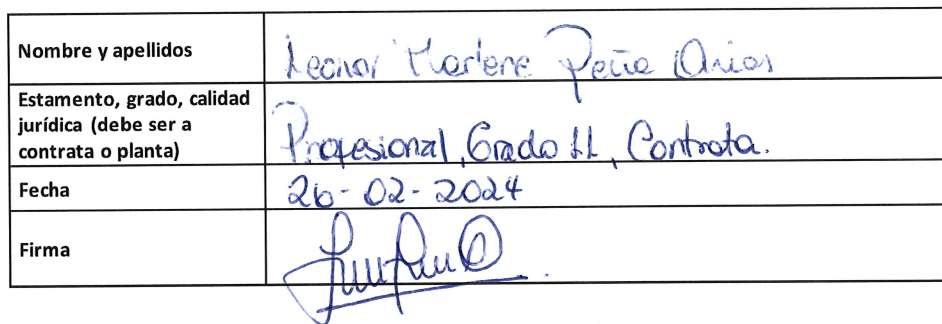 Nombre y apellidos
Leonor Marlene Peña Arias
Estamento, grado, calidad
jurídica (debe ser a
contrata o planta)
Profesional, Grado 11, Contrata.
Fecha
26-02-2024
Firma